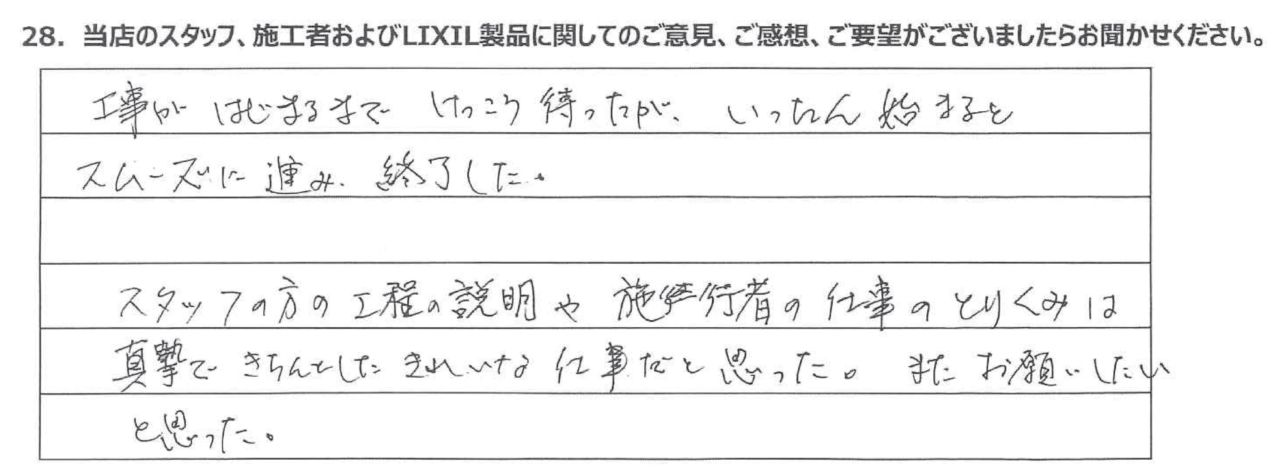 28. 当店のスタッフ、施工者およびLIXIL製品に関してのご意見、ご感想、ご要望がございましたらお聞かせください。
工事が はじまるまで けっこう 待ったが、いったん 始まると
スムーズに 進み、終了した。
スタッフの方の工程の説明や 施行者の仕事のとりくみは
真摯で きちんとした きれいな 仕事だと思った。また お願いしたい
と思った。